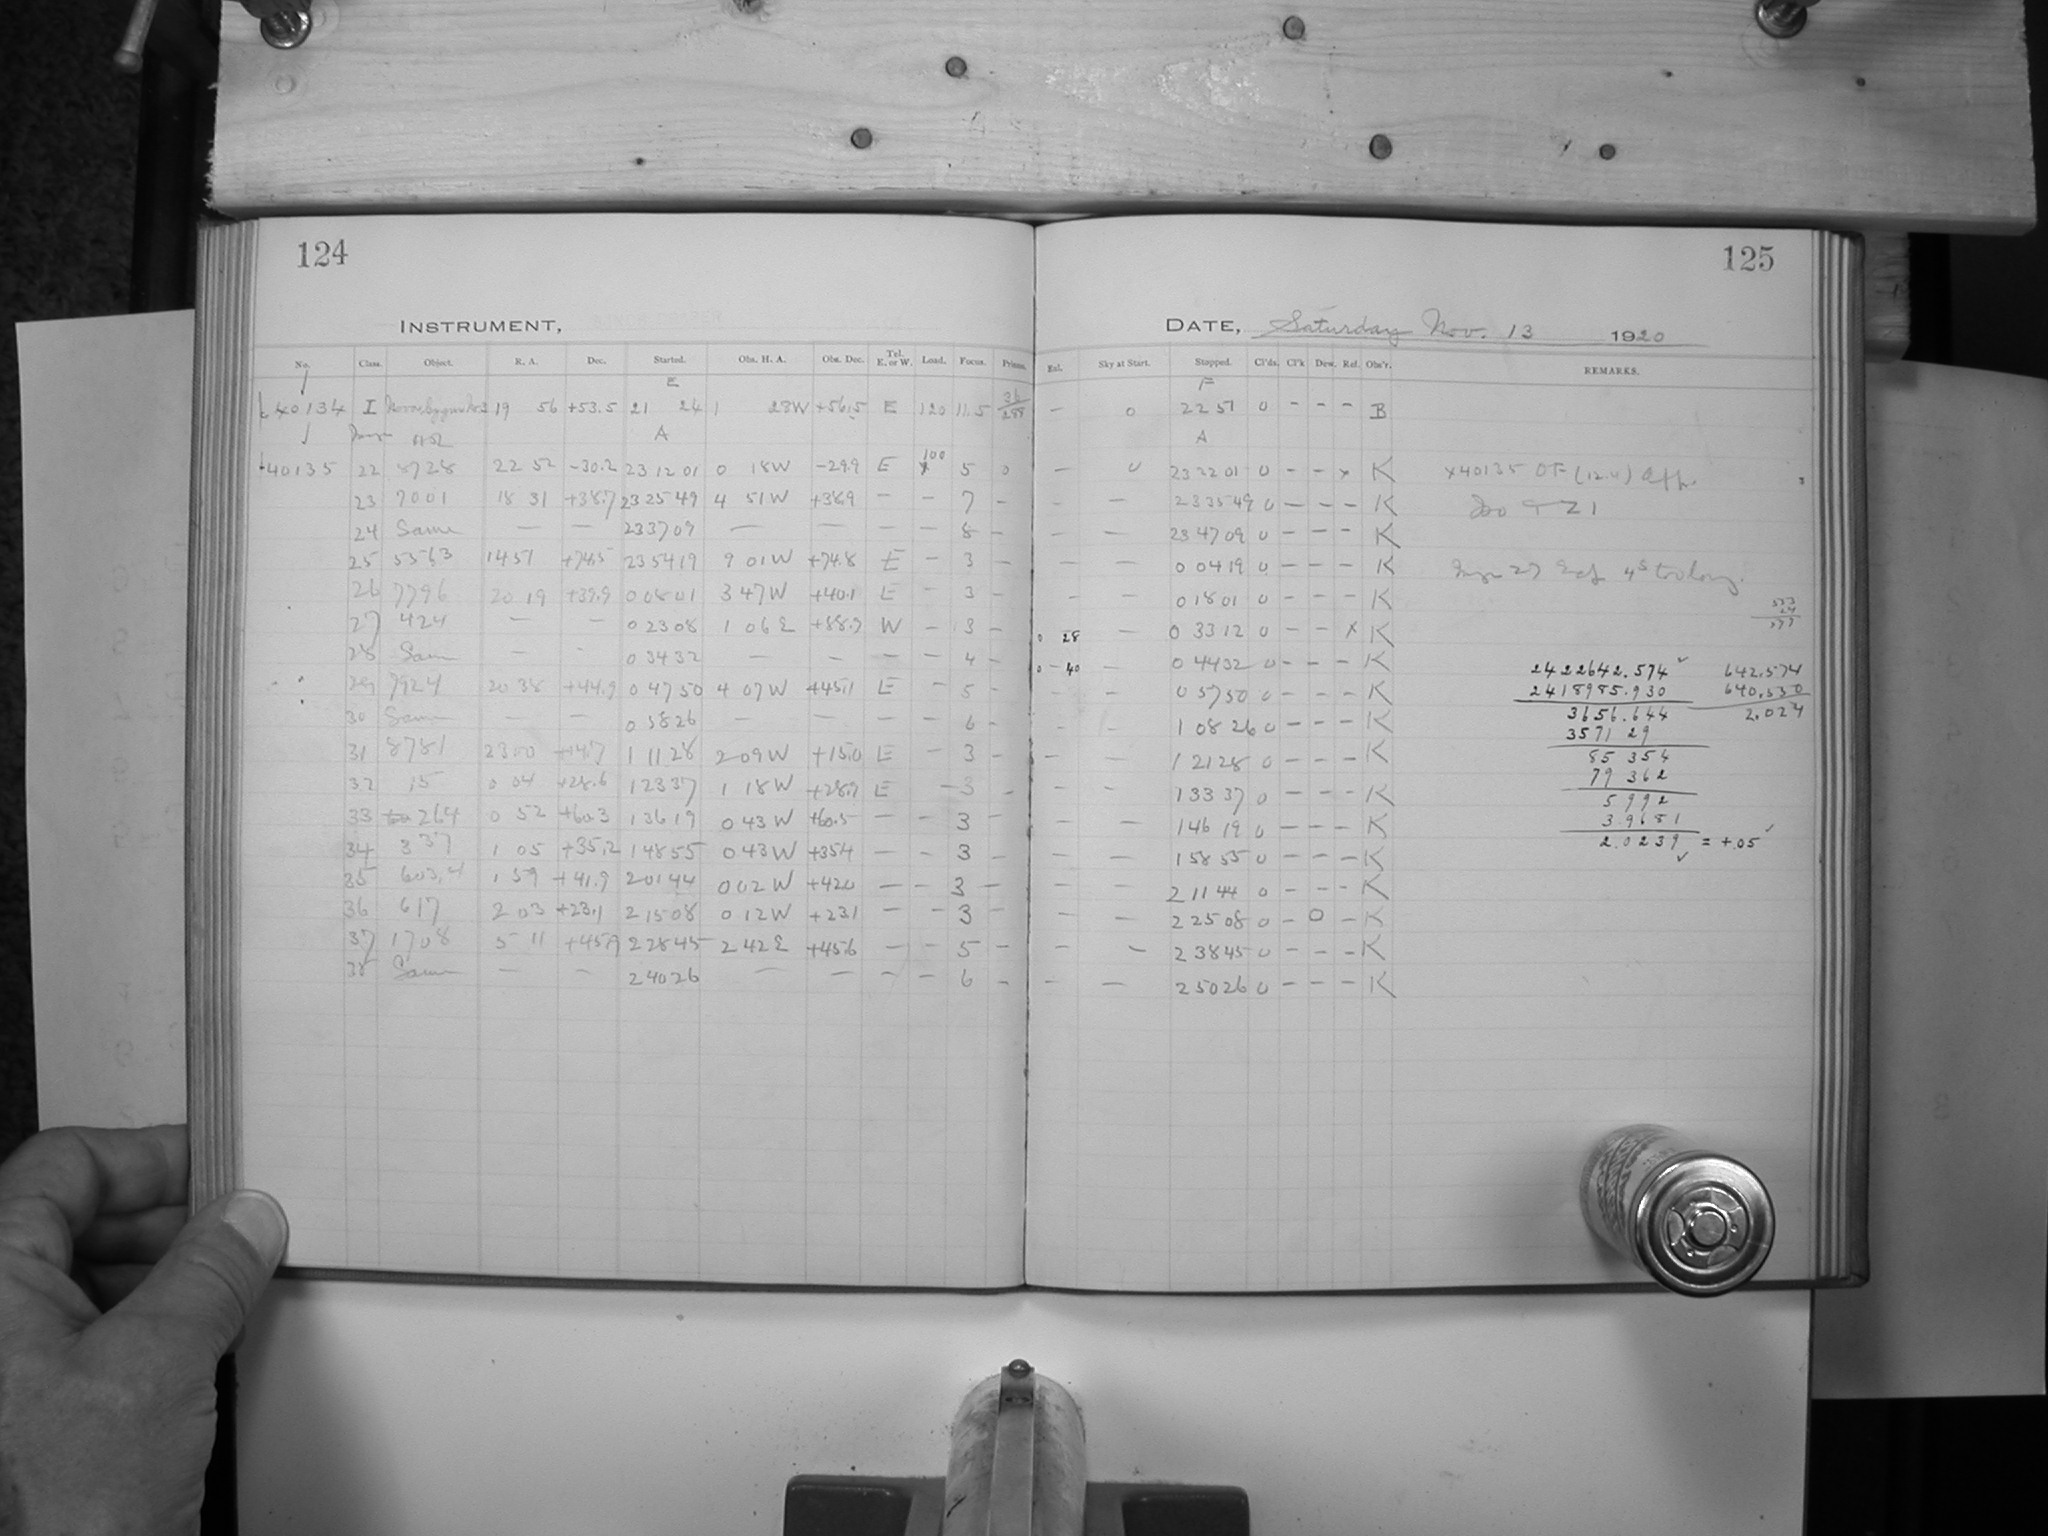 124
125
INSTRUMENT,
DATE, Saturday Nov. 13 1920
No. Class. Object. R. A. Dec. Started. Obs. H. A. Obs. Dec. Tel. E. or W. Load. Focus. Prisms. Sky at Start. Stopped. Cl'ds. Cl'k Dew. Rel. Obs'r. REMARKS.
E F
40134 I 19 56 +53.5 21 24 1 28W +56.5 E 120 11.5 36/288 — 0 22 51 0 - - - B
A A
40135 22 8728 22 52 -30.2 23 12 01 0 18W -29.9 E 100 5 0 — 0 23 22 01 0 - - x K x40135 OF (12.0)
23 7001 18 31 +38.7 23 25 49 4 51W +38.9 — — 7 - — — 23 35 49 0 - - - K
24 Same — — 23 37 09 — — — — 8 - — — 23 47 09 0 - - - K
25 5563 14 51 +74.5 23 54 19 9 01W +74.8 E — 3 - — — 0 04 19 0 - - - K
26 7796 20 19 +39.9 0 08 01 3 47W +40.1 E — 3 - — — 0 18 01 0 - - - K
27 424 — — 0 23 08 1 06E +88.9 W — 3 - 0 28 — 0 33 12 0 - - x K
28 Same — - 0 34 32 — — — — 4 - 0 40 — 0 44 32 0 - - - K
29 7924 20 38 +44.9 0 47 50 4 07W +45.1 E — 5 - — — 0 57 50 0 - - - K
30 Same — — 0 58 26 — — — — 6 - — — 1 08 26 0 - - - K
31 8781 23 00 +14.7 1 11 28 2 09W +15.0 E — 3 - — — 1 21 28 0 - - - K
32 15 0 04 +28.6 1 23 37 1 18W +28.9 E — 3 - — — 1 33 37 0 - - - K
33 264 0 52 +60.3 1 36 19 0 43W +60.5 — — 3 - — — 1 46 19 0 - - - K
34 337 1 05 +35.2 1 48 55 0 43W +35.4 — — 3 - — — 1 58 55 0 - - - K
35 603,4 1 59 +41.9 2 01 44 0 02W +42.0 — — 3 - — — 2 11 44 0 - - - K
36 617 2 03 +23.1 2 15 08 0 12W +23.1 — — 3 - — — 2 25 08 0 - 0 - K
37 1708 5 11 +45.9 2 28 45 2 42E +45.6 — — 5 - — — 2 38 45 0 - - - K
38 Same — — 2 40 26 — — — — 6 - — — 2 50 26 0 - - - K
2422642.574 642.574
2418985.930 640.550
3656.644 2.024
3571 29
85 354
79 362
5 992
3.9681
2.0239 = +.05